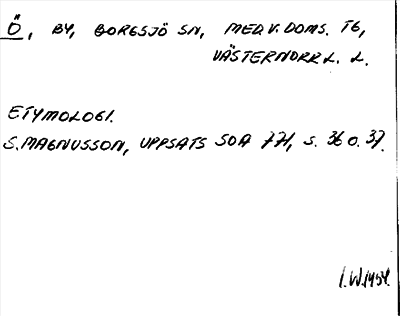 Ö, BY, BORGSJÖ SN, MED.V.DOMS. TG,
VÄSTERNORRL. L.
ETYMOLOGI.
S. MAGNUSSON, UPPSATS SOA 771, S. 36 O. 37.
I.W.1954.